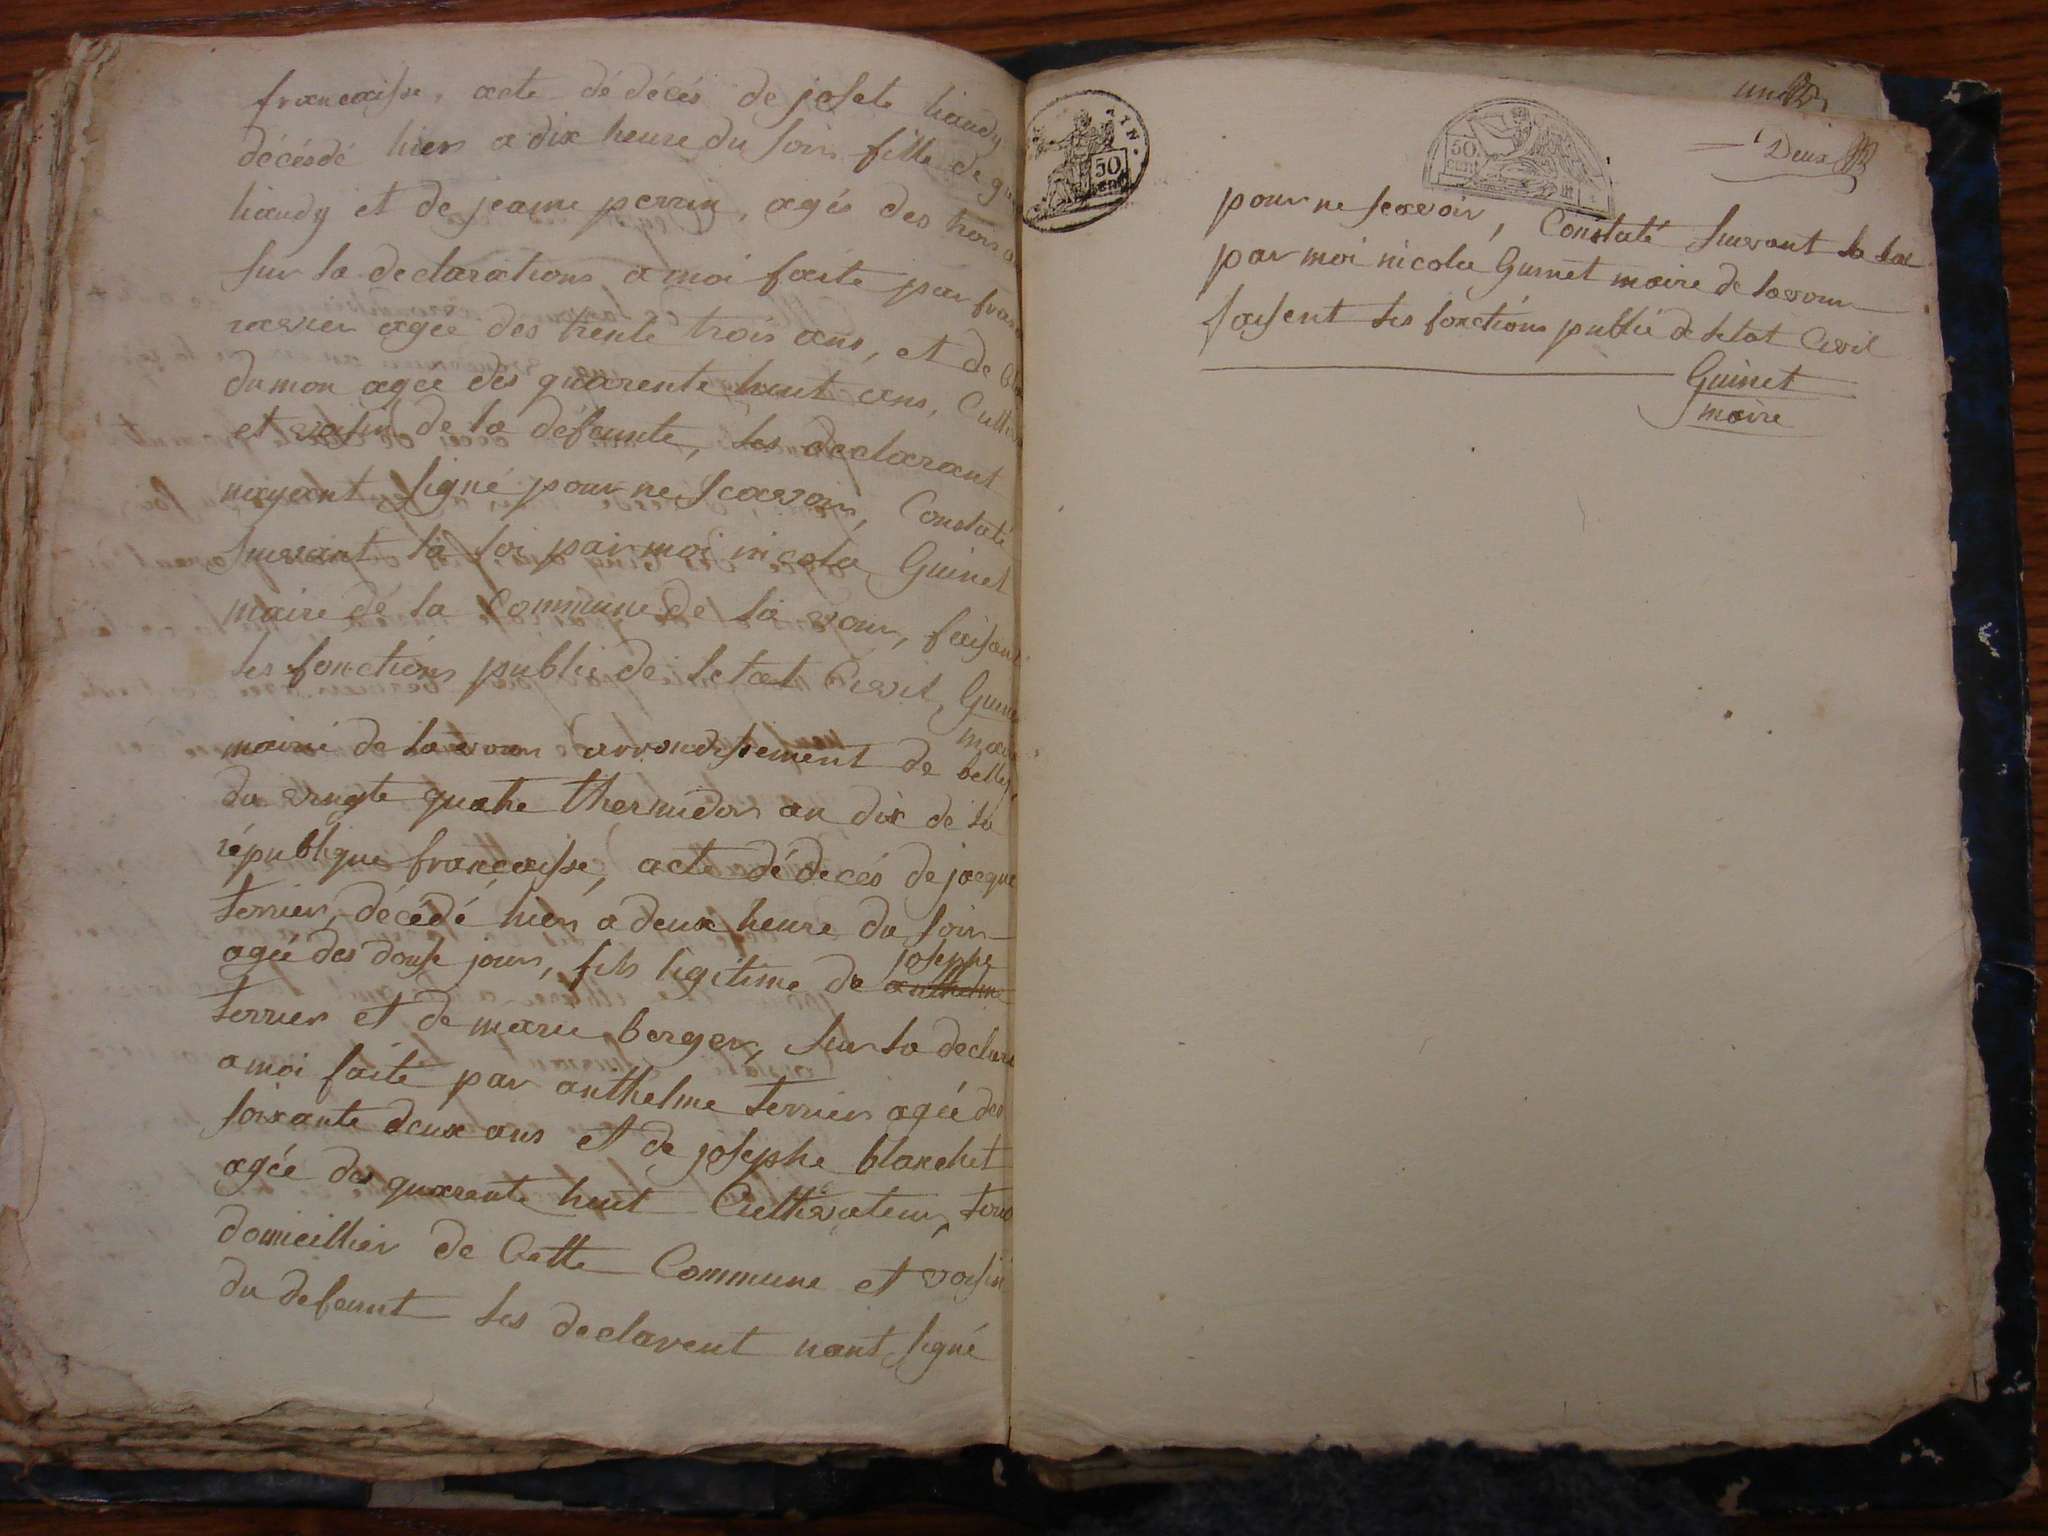 francaisse, acte dé décés de josete liaudy
décédé hier a dix heure du soir fille de
liaudy et de jeanne perrin, agée des trois
sur la declarations a moi faite par
ravier agée des trente trois ans, et de
dumon agée des quarente huit ans,
et voisin de la défeunte, les declarant
nayant signé pour ne scavoir, Constaté
suivant la loi par moi nicola Guinet
maire dé la Commune de la vour, faisant
les fonctions public de letat Civil,
mairie de lavour arrondissement de belley
du vingte quatre thermidor an dix de la
république francaisse, acte dé decés de jacque
terrier, décédé hier a deux heure du soir
agée des douse jour, fils legitime de anthelme
josephe
terrier et de marie berger, sur la declara
a moi faite par anthelme terrier agée des
soixante deux ans et de josephe blanchet
agée des quarente huit Cultivateur, tous
domicillier de Cette Commune et voisin
du defeunt les declarent nant signé
AIN
50
CENT
50
CENT
un
Deux
pour ne scavoir, Constaté suivant la loi
par moi nicola Guinet maire de lavour
faisent les fonctions public de letat Civil
Guinet
maire